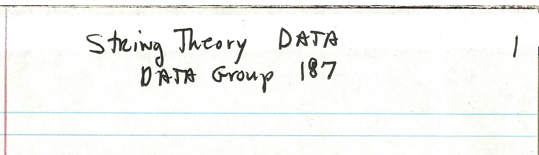 String Theory DATA 1
DATA Group 187